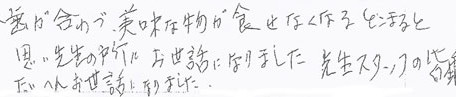 歯が合わず、美味な物が食せなくなる どこまると
思い先生の所にお世話になりました 先生スタッフの皆様
たいへんお世話になりました.